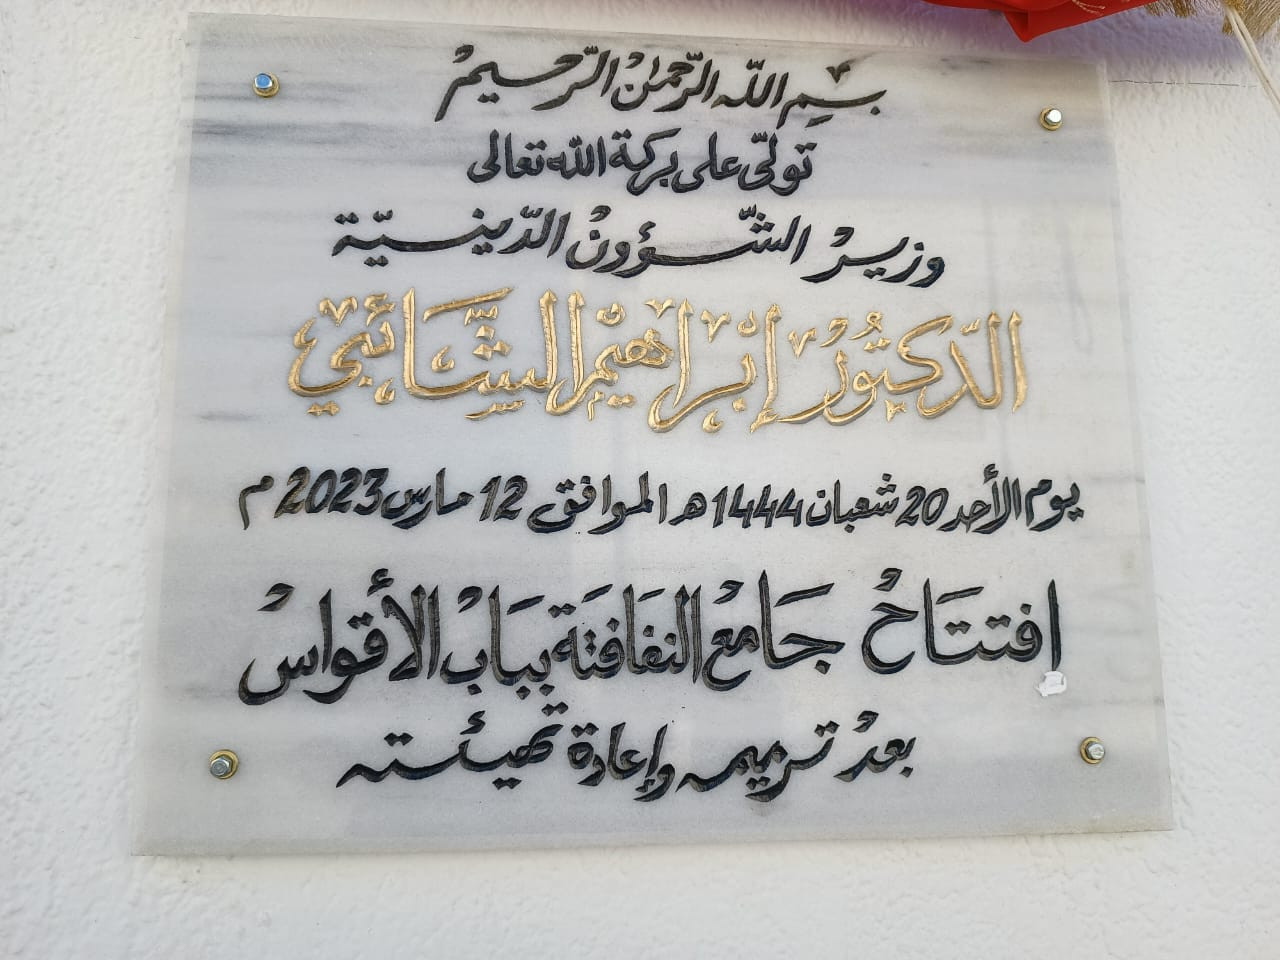 بسم الله الرّحمٰن الرّحيم
تولّى على بركة الله تعالى
وزير الشّؤون الدّينيّة
الدّكتور إبراهيم الشّائبي
يوم الأحد 20 شعبان 1444 هـ الموافق 12 مارس 2023 م
إفتتاح جامع النفافتة بباب الأقواس
بعد ترميمه وإعادة تهيئته